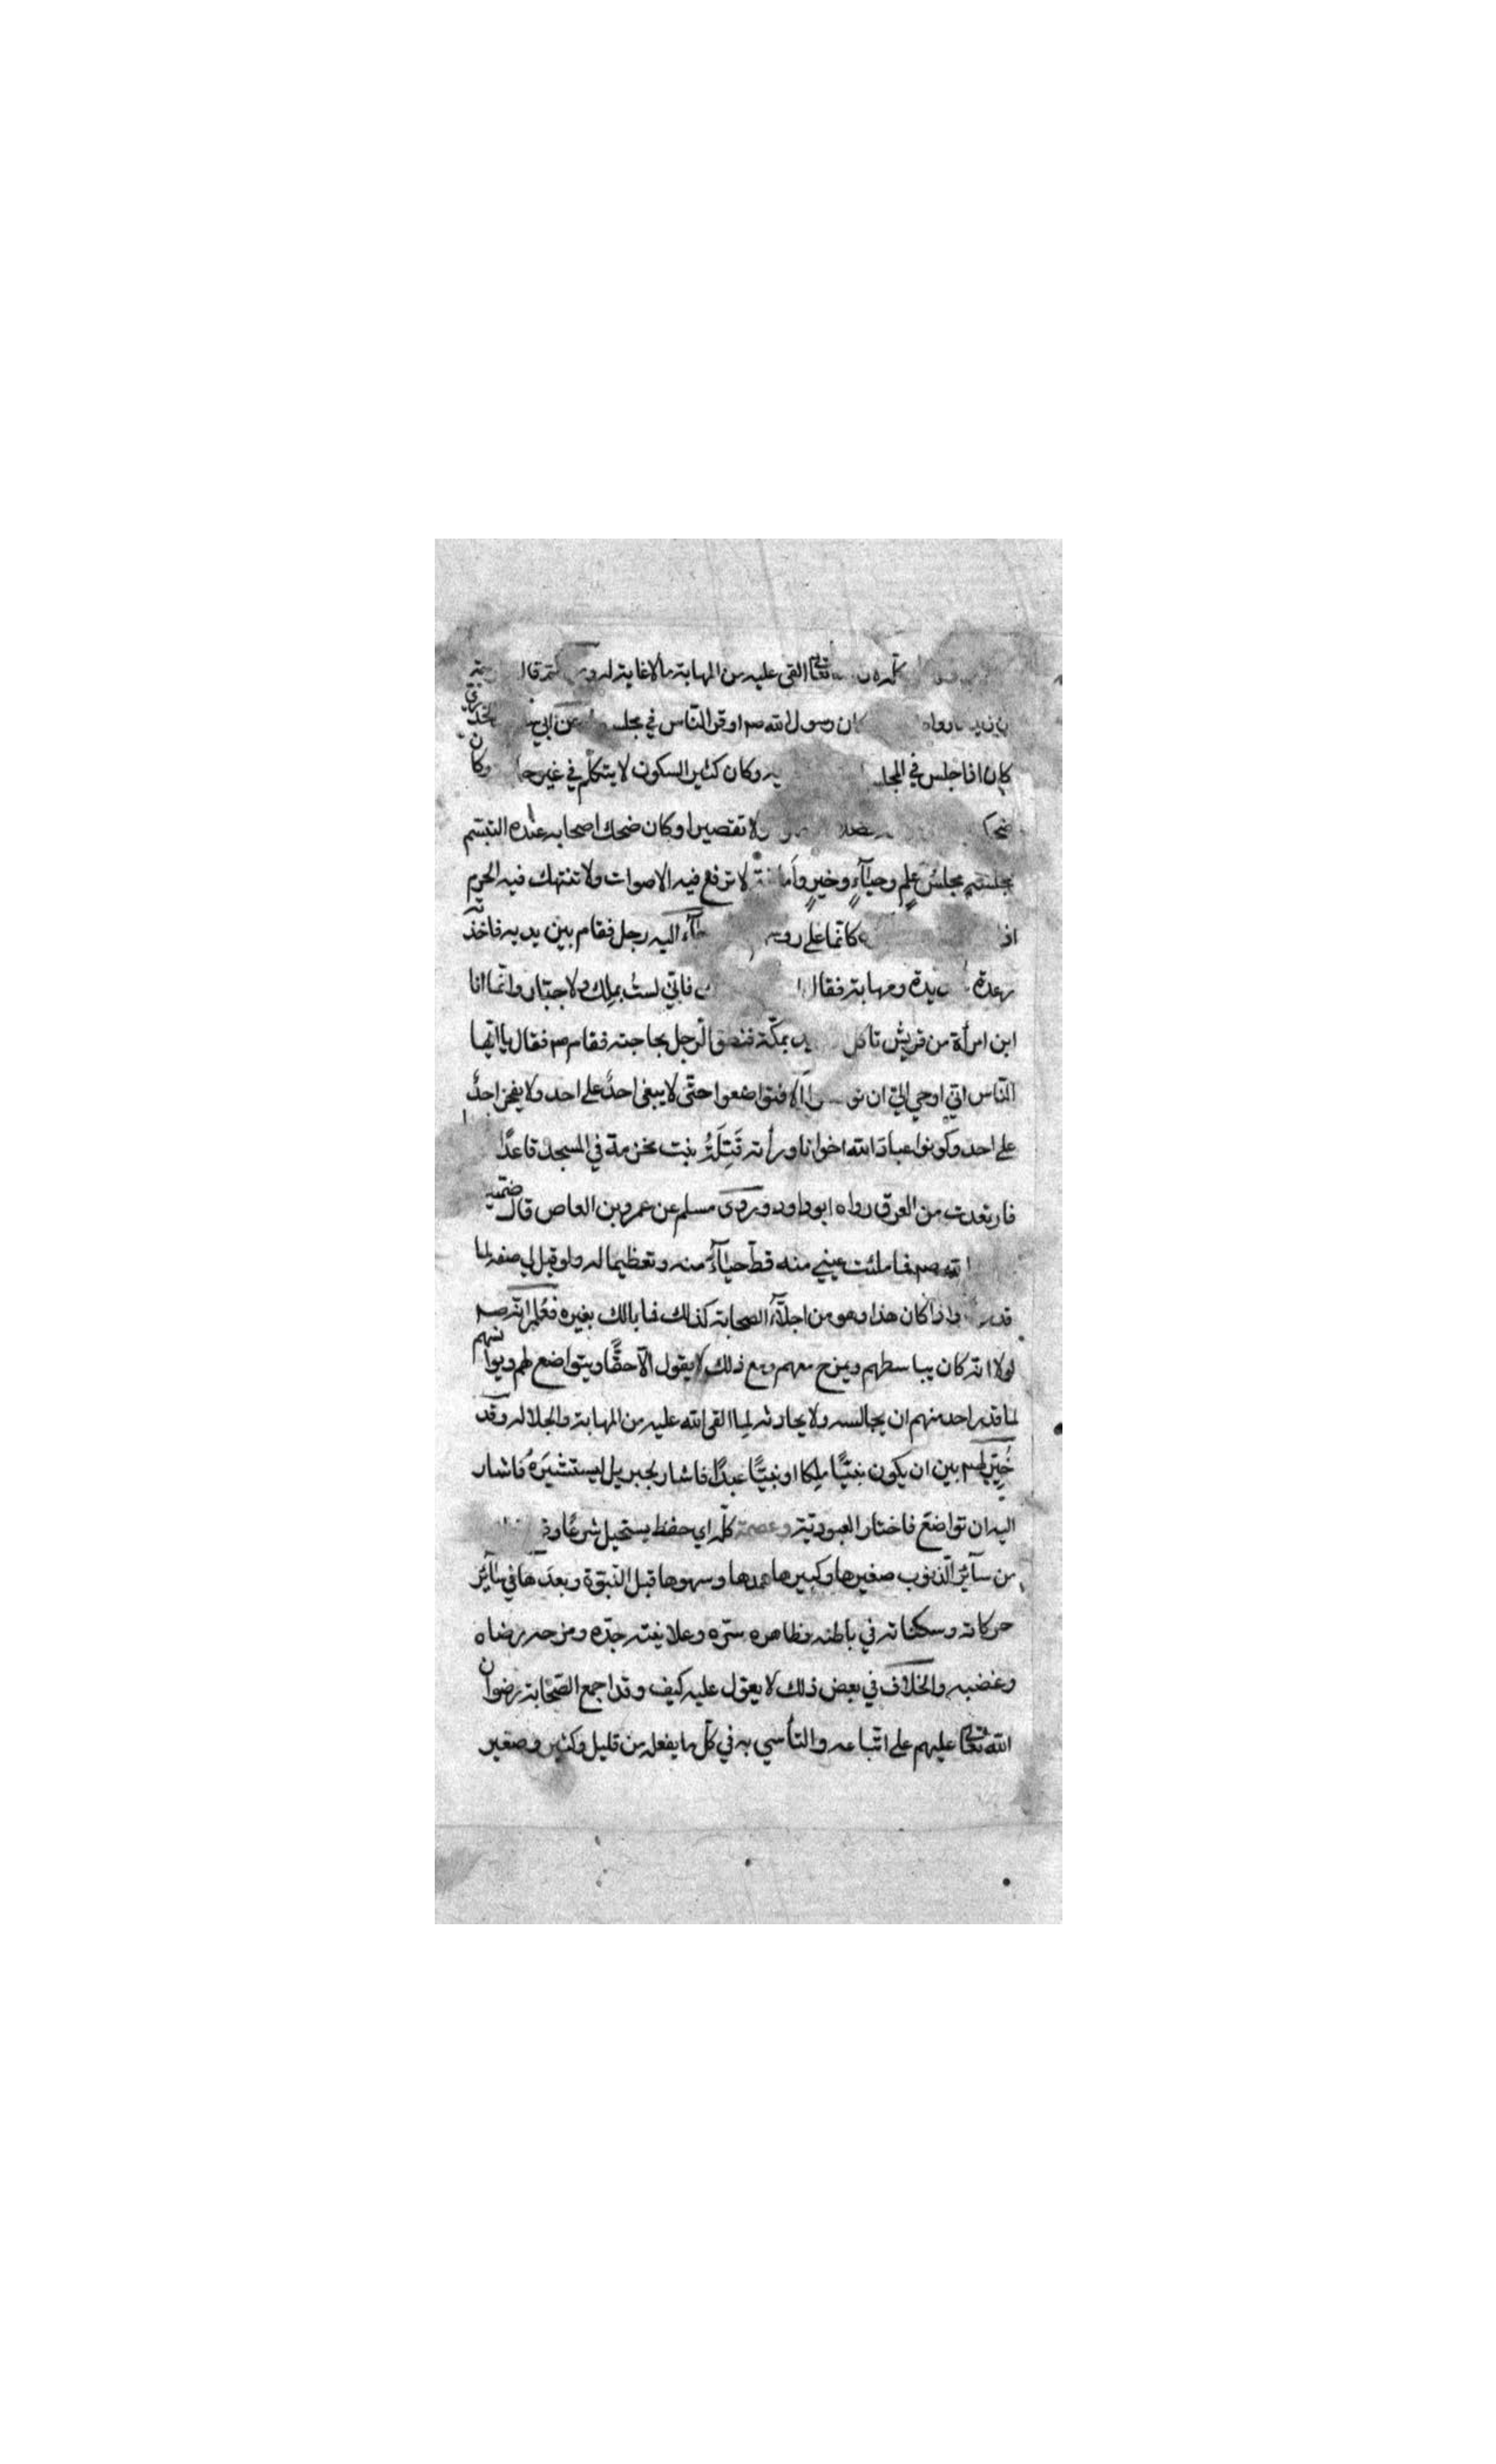 تعالى القى عليه من المهابة ما لا غاية له
رسول الله صم اوقر الناس في عن ابي الخدري
كان اذا جلس في وكان كثير السكوت لا يتكلم في غير وكان
ولا تقصير او كان ضحك اصحابه عنده التبسم
مجلس علم وحيآء وخير وأمانة لا ترفع فيه الاصوات ولا تنتهك فيه الحرم
كانما على اليه رجل فقام بين يديه فاخذته
رعدة ومهابة فقال فاني لست بملك ولا جبار وانما انا
ابن امرأة من قريش تاكل بمكة فنطق الرجل بحاجته فقام صم فقال يا ايها
الناس اني اوحي الي ان الا فتواضعوا حتى لا يبغى احد على احد ولا يفخر احد
على احد وكونوا عباد الله اخوانا ورأته قيلة بنت مخرمة في المسجد قاعدًا
فارتعدت من الفرق رواه ابو داود وروى مسلم عن عمرو بن العاص قال
الله صم فما ملئت عيني منه قط حيآءً منه وتعظيما له ولو قيل لي صفه لما
واذا كان هذا وهو من اجلآء الصحابة كذلك فما بالك بغيره فعلم انه صم
لولا انه كان يباسطهم ويمزح معهم ومع ذلك لا يقول الا حقًا ويتواضع لهم ويوانسهم
لما قدر احد منهم ان يجالسه ولا يحادثه لما القى الله عليه من المهابة والجلالة وقد
خُيّر صم بين ان يكون نبيًا ملكا او نبيًا عبدًا فاشار لجبريل ليستشيره فاشار
اليه ان تواضع فاختار العبودية وعصمة كله اي حفظ يستحيل شرعًا
من سآئر الذنوب صغيرها وكبيرها عمدها وسهوها قبل النبوة وبعدها في سآئر
حركاته وسكناته في باطنه وظاهره سره وعلانيته جده ومزحه رضاه
وغضبه والخلاف في بعض ذلك لا يعول عليه كيف وقد اجمع الصحابة رضوان
الله تعالى عليهم على اتباعه والتأسي به في كل ما يفعله من قليل وكثير وصغير